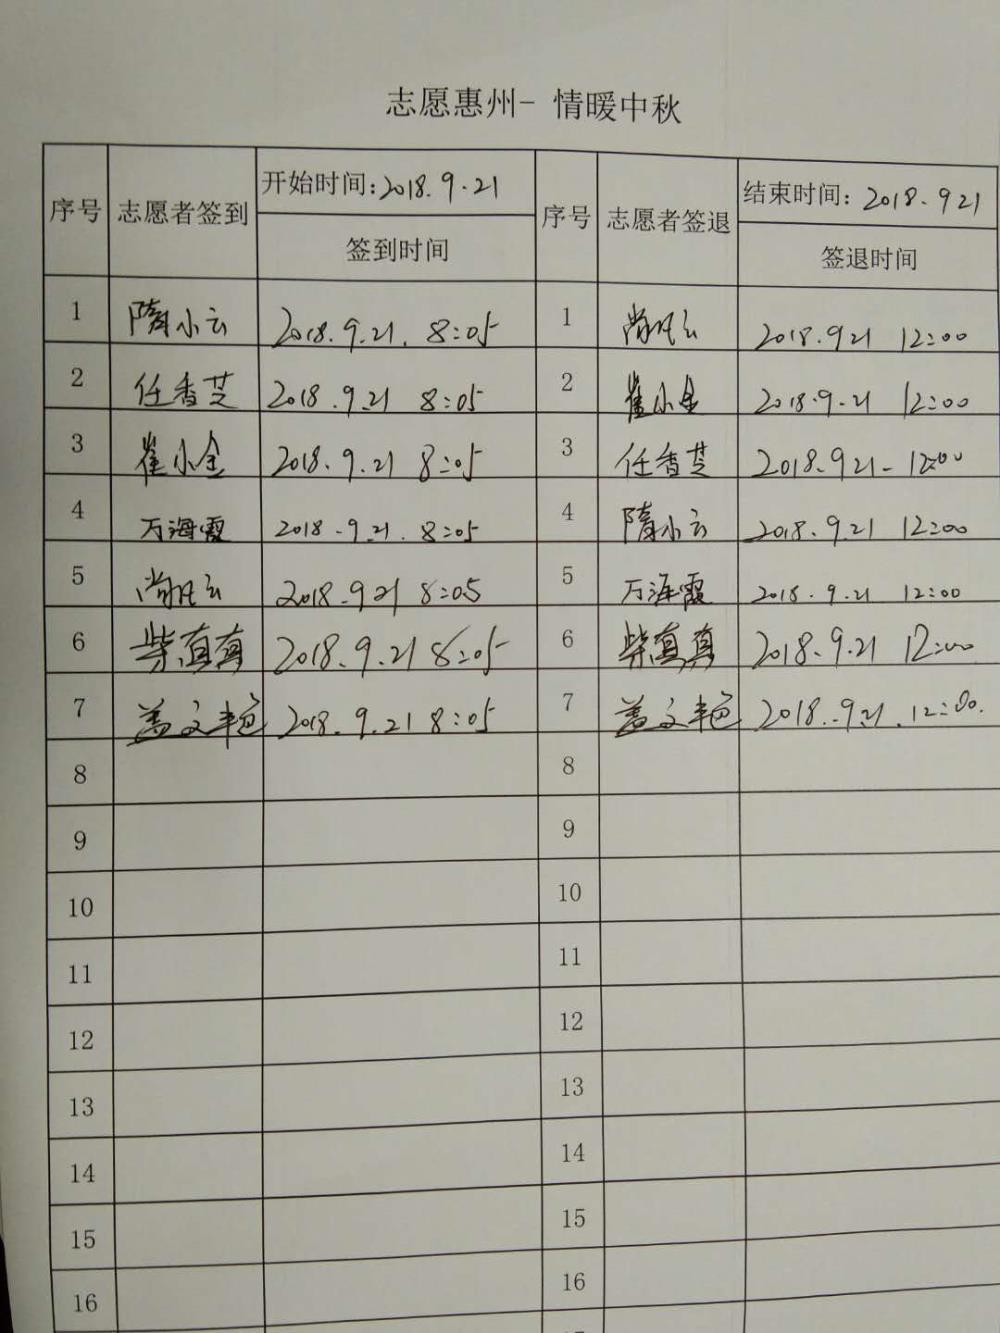 志愿惠州- 情暖中秋
序号 志愿者签到 开始时间:2018.9.21 序号 志愿者签退 结束时间: 2018.921
签到时间 签退时间
1 隋小云 2018.9.21. 8:05 1 尚凡云 2018.9.21 12:00
2 任香芝 2018.9.21 8:05 2 崔小金 2018.9.21 12:00
3 崔小金 2018.9.21 8:05 3 任香芝 2018.921-12:00
4 万海霞 2018.9.21.8:05 4 隋小云 2018.9.21 12:00
5 尚凡云 2018.921 8:05 5 万海霞 2018.9.21 12:00
6 柴真真 2018.9.21 8:05 6 柴真真 2018.9.21 12:00
7 盖文艳 2018.9.21 8:05 7 盖文艳 2018.9.21.12:00.
8 8
9 9
10 10
11 11
12 12
13 13
14 14
15 15
16 16